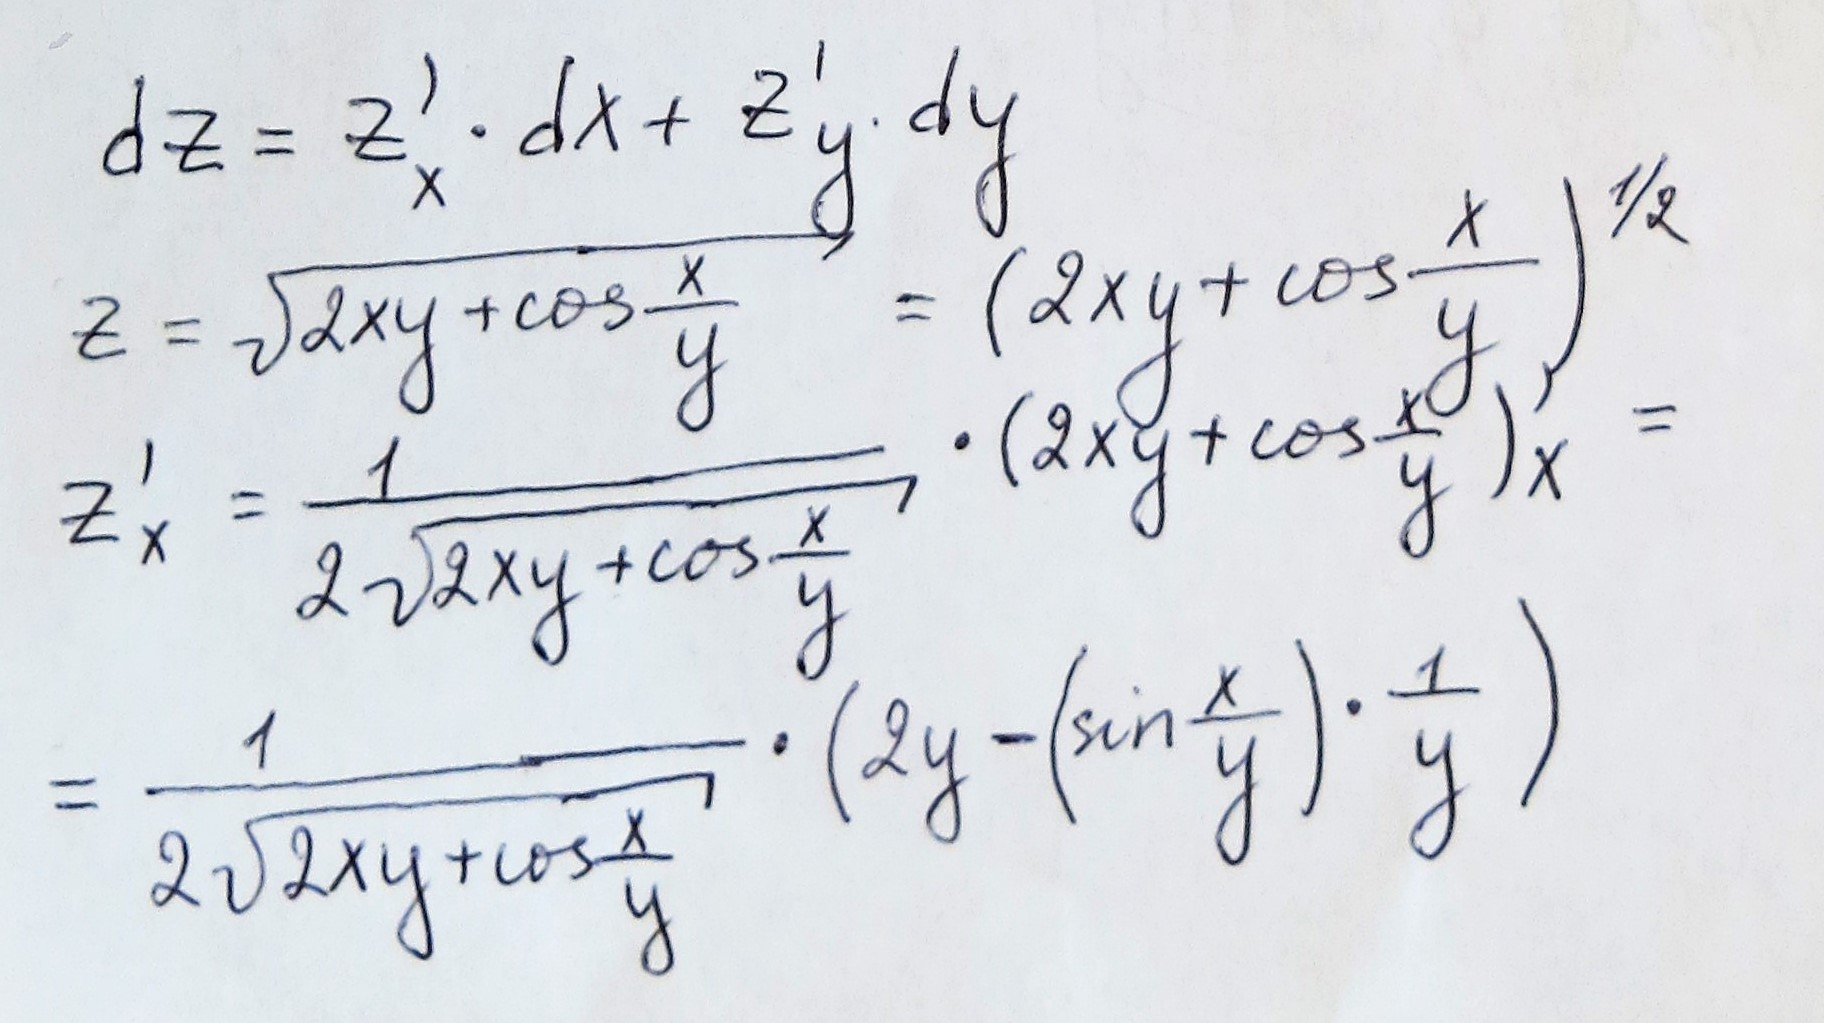 dz = z'ₓ · dx + z'_y · dy
z = √(2xy + cos x/y) = (2xy + cos x/y)^1/2
z'ₓ = 1/(2√(2xy + cos x/y)) · (2xy + cos x/y)'ₓ =
= 1/(2√(2xy + cos x/y)) · (2y - (sin x/y) · 1/y)